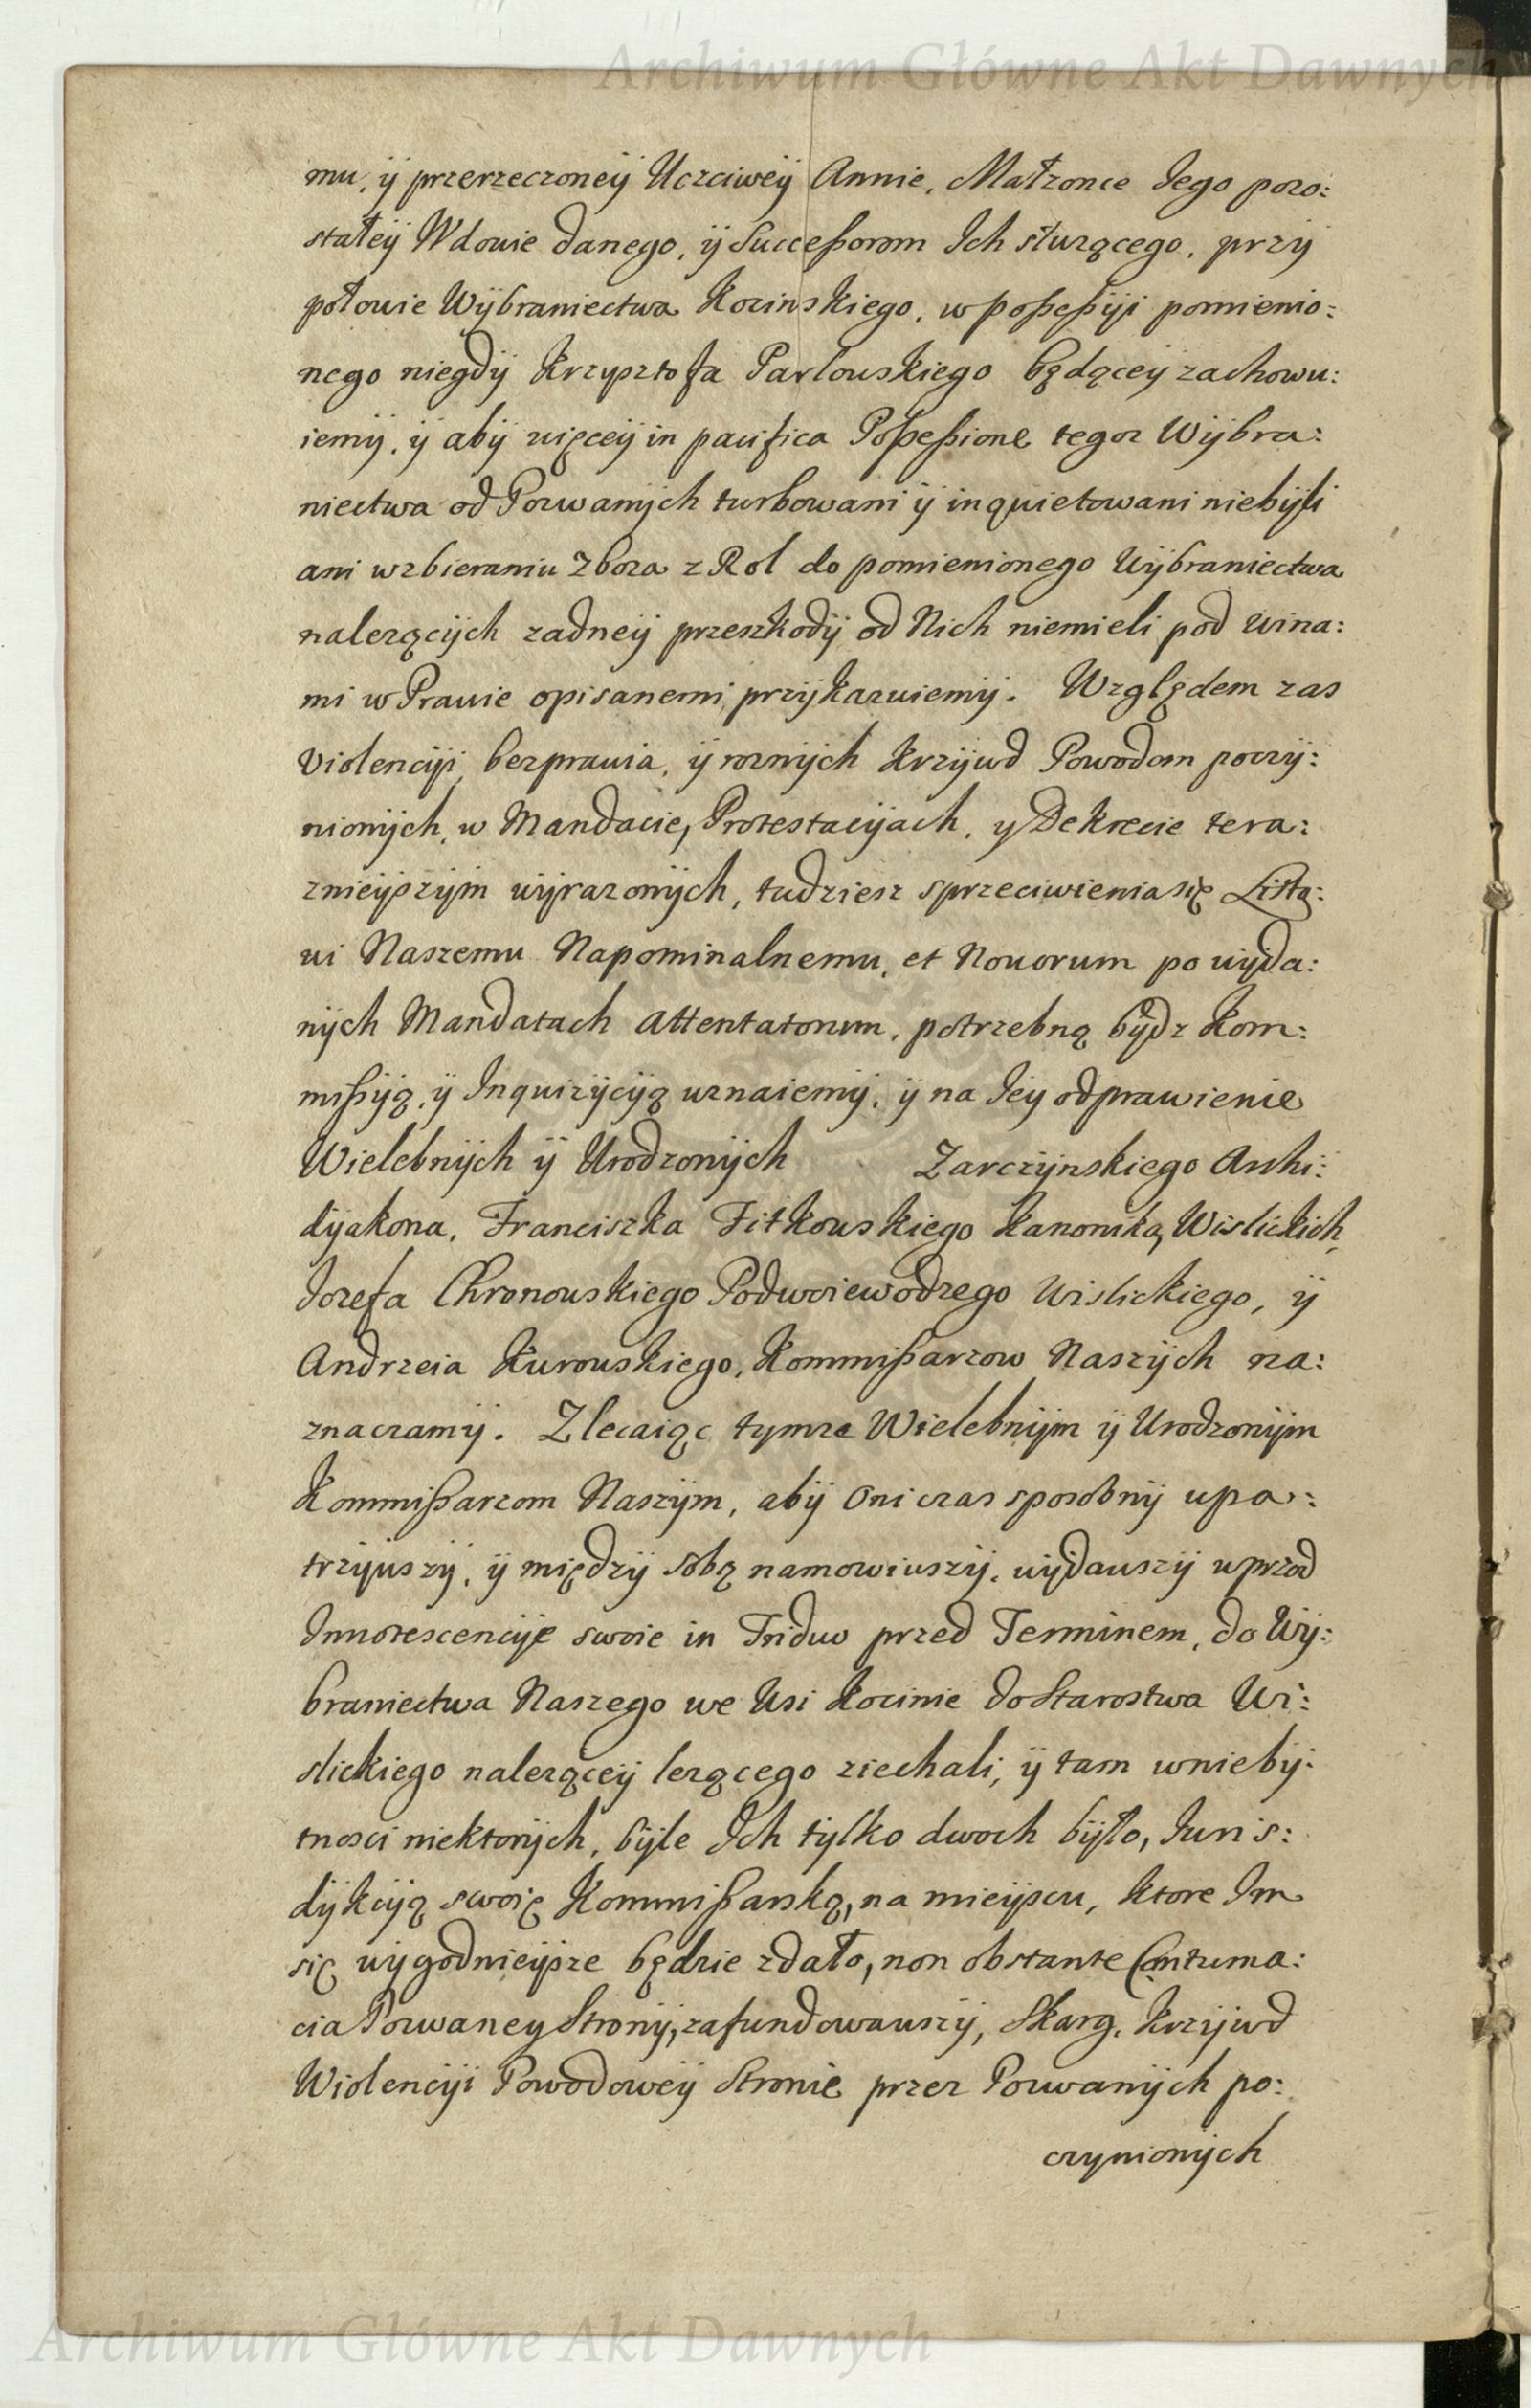 Archiwum Główne Akt Dawnych
mu, ÿ przerzeczoneÿ Uczciweÿ Annie, Małzonce Jego pozo:
stałeÿ Wdowie danego, ÿ Successorom Ich słuzącego, przÿ
połowie Wÿbraniectwa Kocinskiego, w possessÿi pomienio:
nego niegdÿ Krzysztofa Parlowskiego będąceÿ zachowu:
iemÿ, ÿ abÿ więceÿ in pacifica Possessione tegoz Wÿbra:
niectwa od Pozwanÿch turbowani ÿ inquietowani niebÿli
ani wzbieraniu Zboza z Rol do pomienionego Wÿbraniectwa
nalezącÿch zadneÿ przeszkodÿ od Nich niemieli pod wina:
mi w Prawie opisanemi przÿkazuiemÿ. Względem zas
Violencÿi, bezprawia, ÿ roznÿch krzÿwd Powodom poczÿ:
nionÿch, w Mandacie, Protestacÿach, y Dekrecie tera:
znieÿszÿm wÿrazonÿch, tudziesz sprzeciwienia się Listo:
wi Naszemu Napominalnemu, et Novorum po wÿda:
nÿch Mandatach attentatorum, potrzebną bÿdz Kom:
missÿą, ÿ Inquizÿcÿą uznaiemÿ, ÿ na Jeÿ odprawienie
Wielebnÿch ÿ Urodzonÿch Zarczÿnskiego Archi:
dÿakona, Franciszka Fitkowskiego Kanonika, Wislickich,
Jozefa Chronowskiego Podwoiewodzego Wislickiego, ÿ
Andrzeia Kurowskiego, Kommissarzow Naszÿch na:
znaczamÿ. Zlecaiąc tymze Wielebnÿm ÿ Urodzonÿm
Kommissarzom Naszÿm, abÿ oni czas sposobnÿ upa:
trzÿwszÿ, ÿ międzÿ sobą namowiwszÿ, wÿdawszÿ wprzod
Innotescencÿe swoie in Triduo przed Terminem, do Wÿ:
braniectwa Naszego we Wsi Kocinie do Starostwa Wi:
slickiego naleząceÿ lezącego ziechali, ÿ tam wniebÿ:
tnosci niektorÿch, bÿle Ich tÿlko dwoch bÿło, Juris:
dÿkcÿą swoię Kommissarską, na mieÿscu, ktore Im
się wÿgodnieÿsze będzie zdało, non obstante Contuma:
cia Pozwaney Stronÿ, zafundowawszÿ, Skarg, Krzÿwd
Wiolencÿi Powodoweÿ Stronie przez Pozwanÿch po:
czynionÿch
Archiwum Główne Akt Dawnych